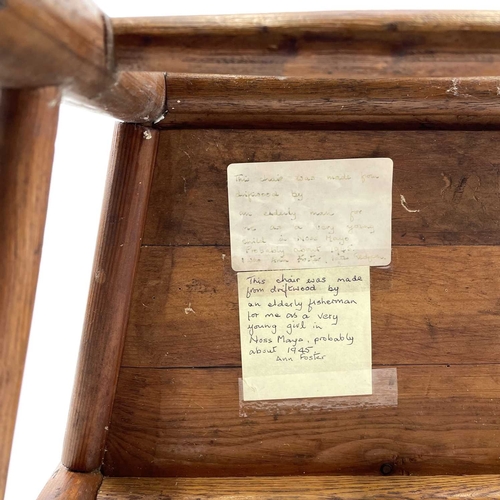 This chair was made from
driftwood by
an elderly man for
me as a very young
child in Noss Mayo
This chair was made
from driftwood by
an elderly fisherman
for me as a very
young girl in
Noss Mayo, probably
about 1945
Ann Foster